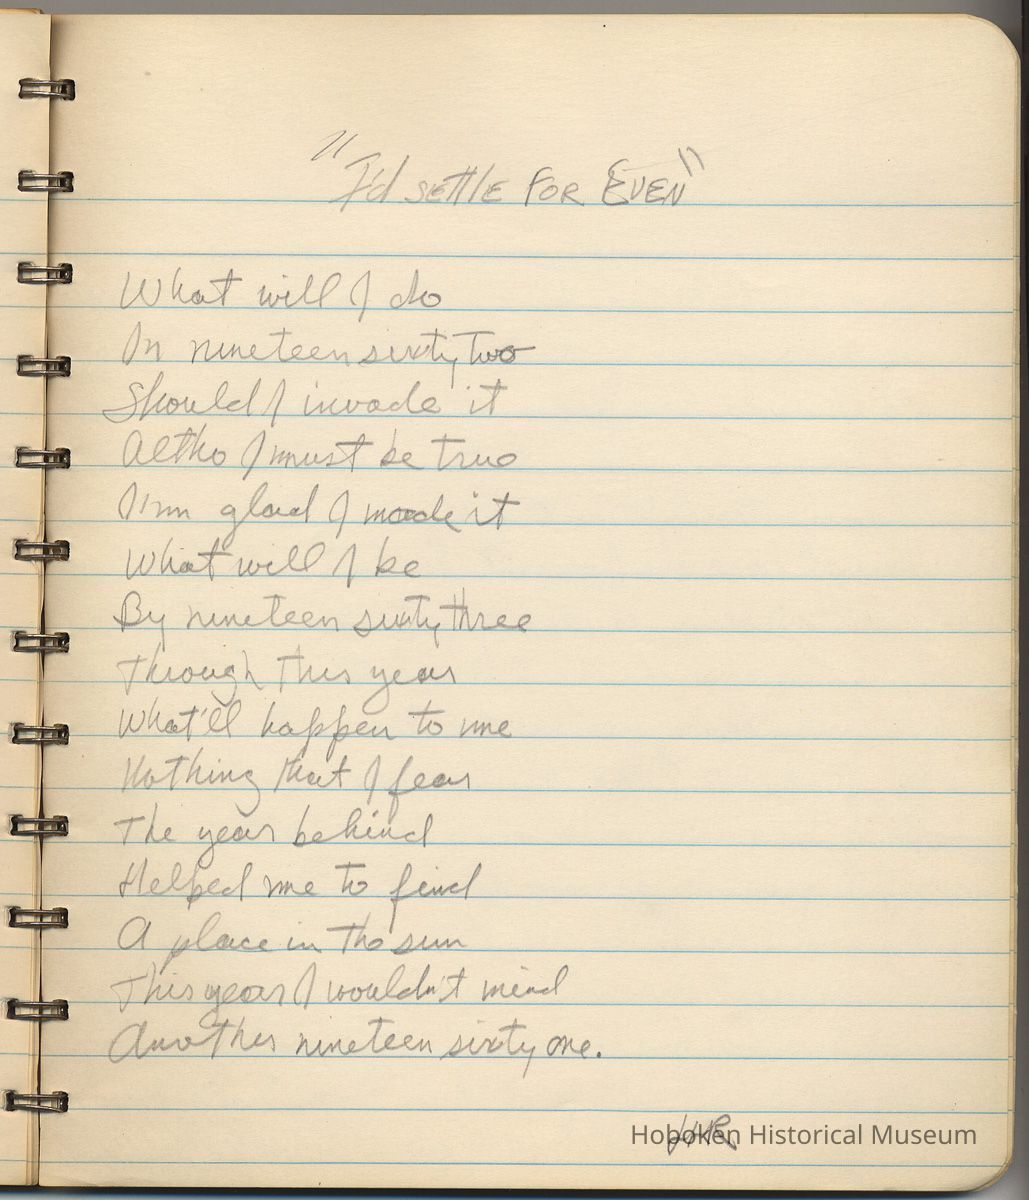 "I'd settle for Even"
What will I do
In nineteen sixty two
Should I invade it
Altho I must be true
I'm glad I made it
What will I be
By nineteen sixty three
Through this year
What'll happen to me
Nothing that I fear
The year behind
Helped me to find
A place in the sun
This year I wouldn't mind
Another nineteen sixty one.
Hoboken Historical Museum